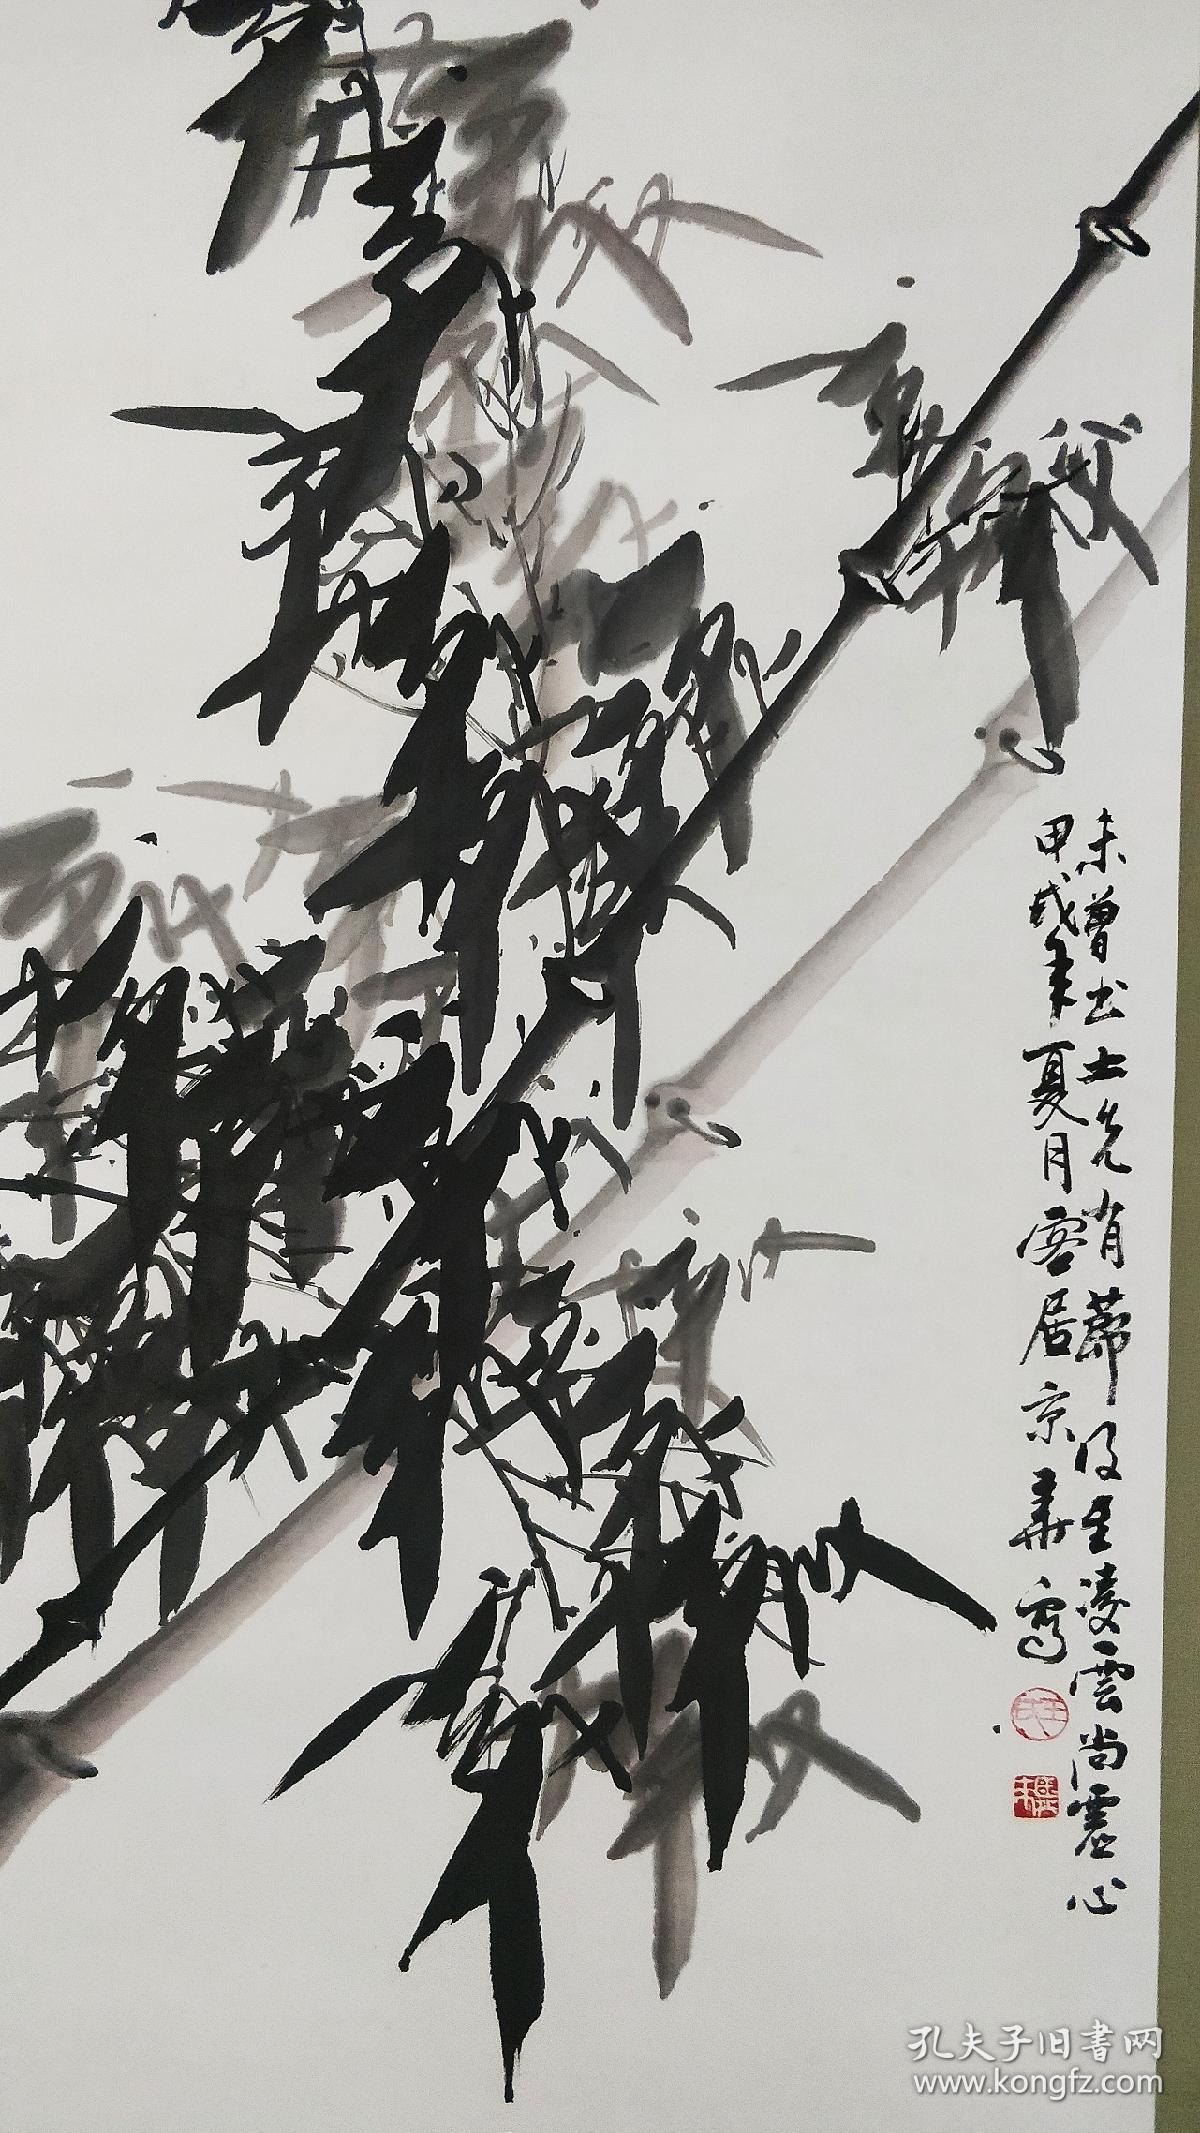 未曾出土先有節及至凌雲尚虛心
甲戌年夏月客居京華寫
孔夫子旧书网
www.kongfz.com